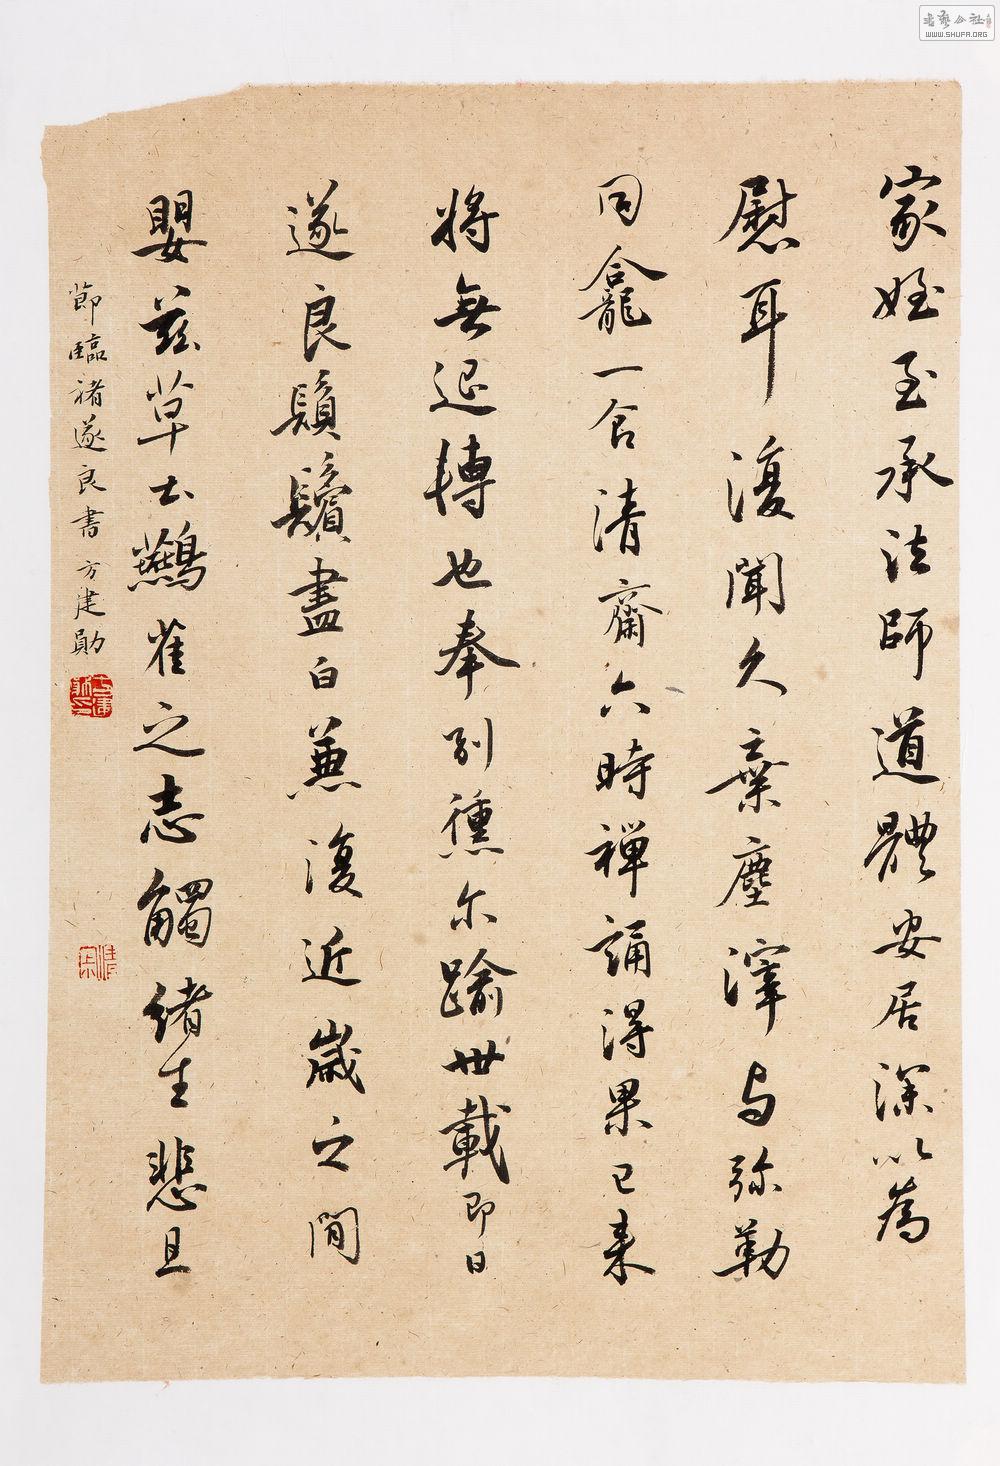 家姪至承法師道體安居深以為
慰耳復聞久棄塵滓与弥勒
同龕一食清齋六時禪誦得果已來
將無退轉也奉別倐尔踰卅載即日
遂良鬚鬢盡白兼復近歲之間
嬰茲草土鷰雀之志觸緒生悲且
節臨褚遂良書方建勛
書藝公社
WWW.SHUFA.ORG